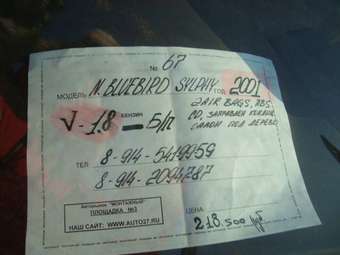 № 67
МОДЕЛЬ N. BLUEBIRD SYLPHY ГОД 2001
V-1.8 БЕНЗИН — Б/П
2AIR BAGS, ABS.
CD, ЗАПРАВЛЕН КОНДИЦ.
САЛОН ПОД ДЕРЕВО
ТЕЛ 8-914-5419959
8-914-2094787
Авторынок "МОНТАЖНЫЙ"
ПЛОЩАДКА №3
НАШ САЙТ: WWW.AUTO27.RU
ЦЕНА
218.500 руб